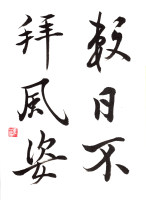 数日不
拜風姿